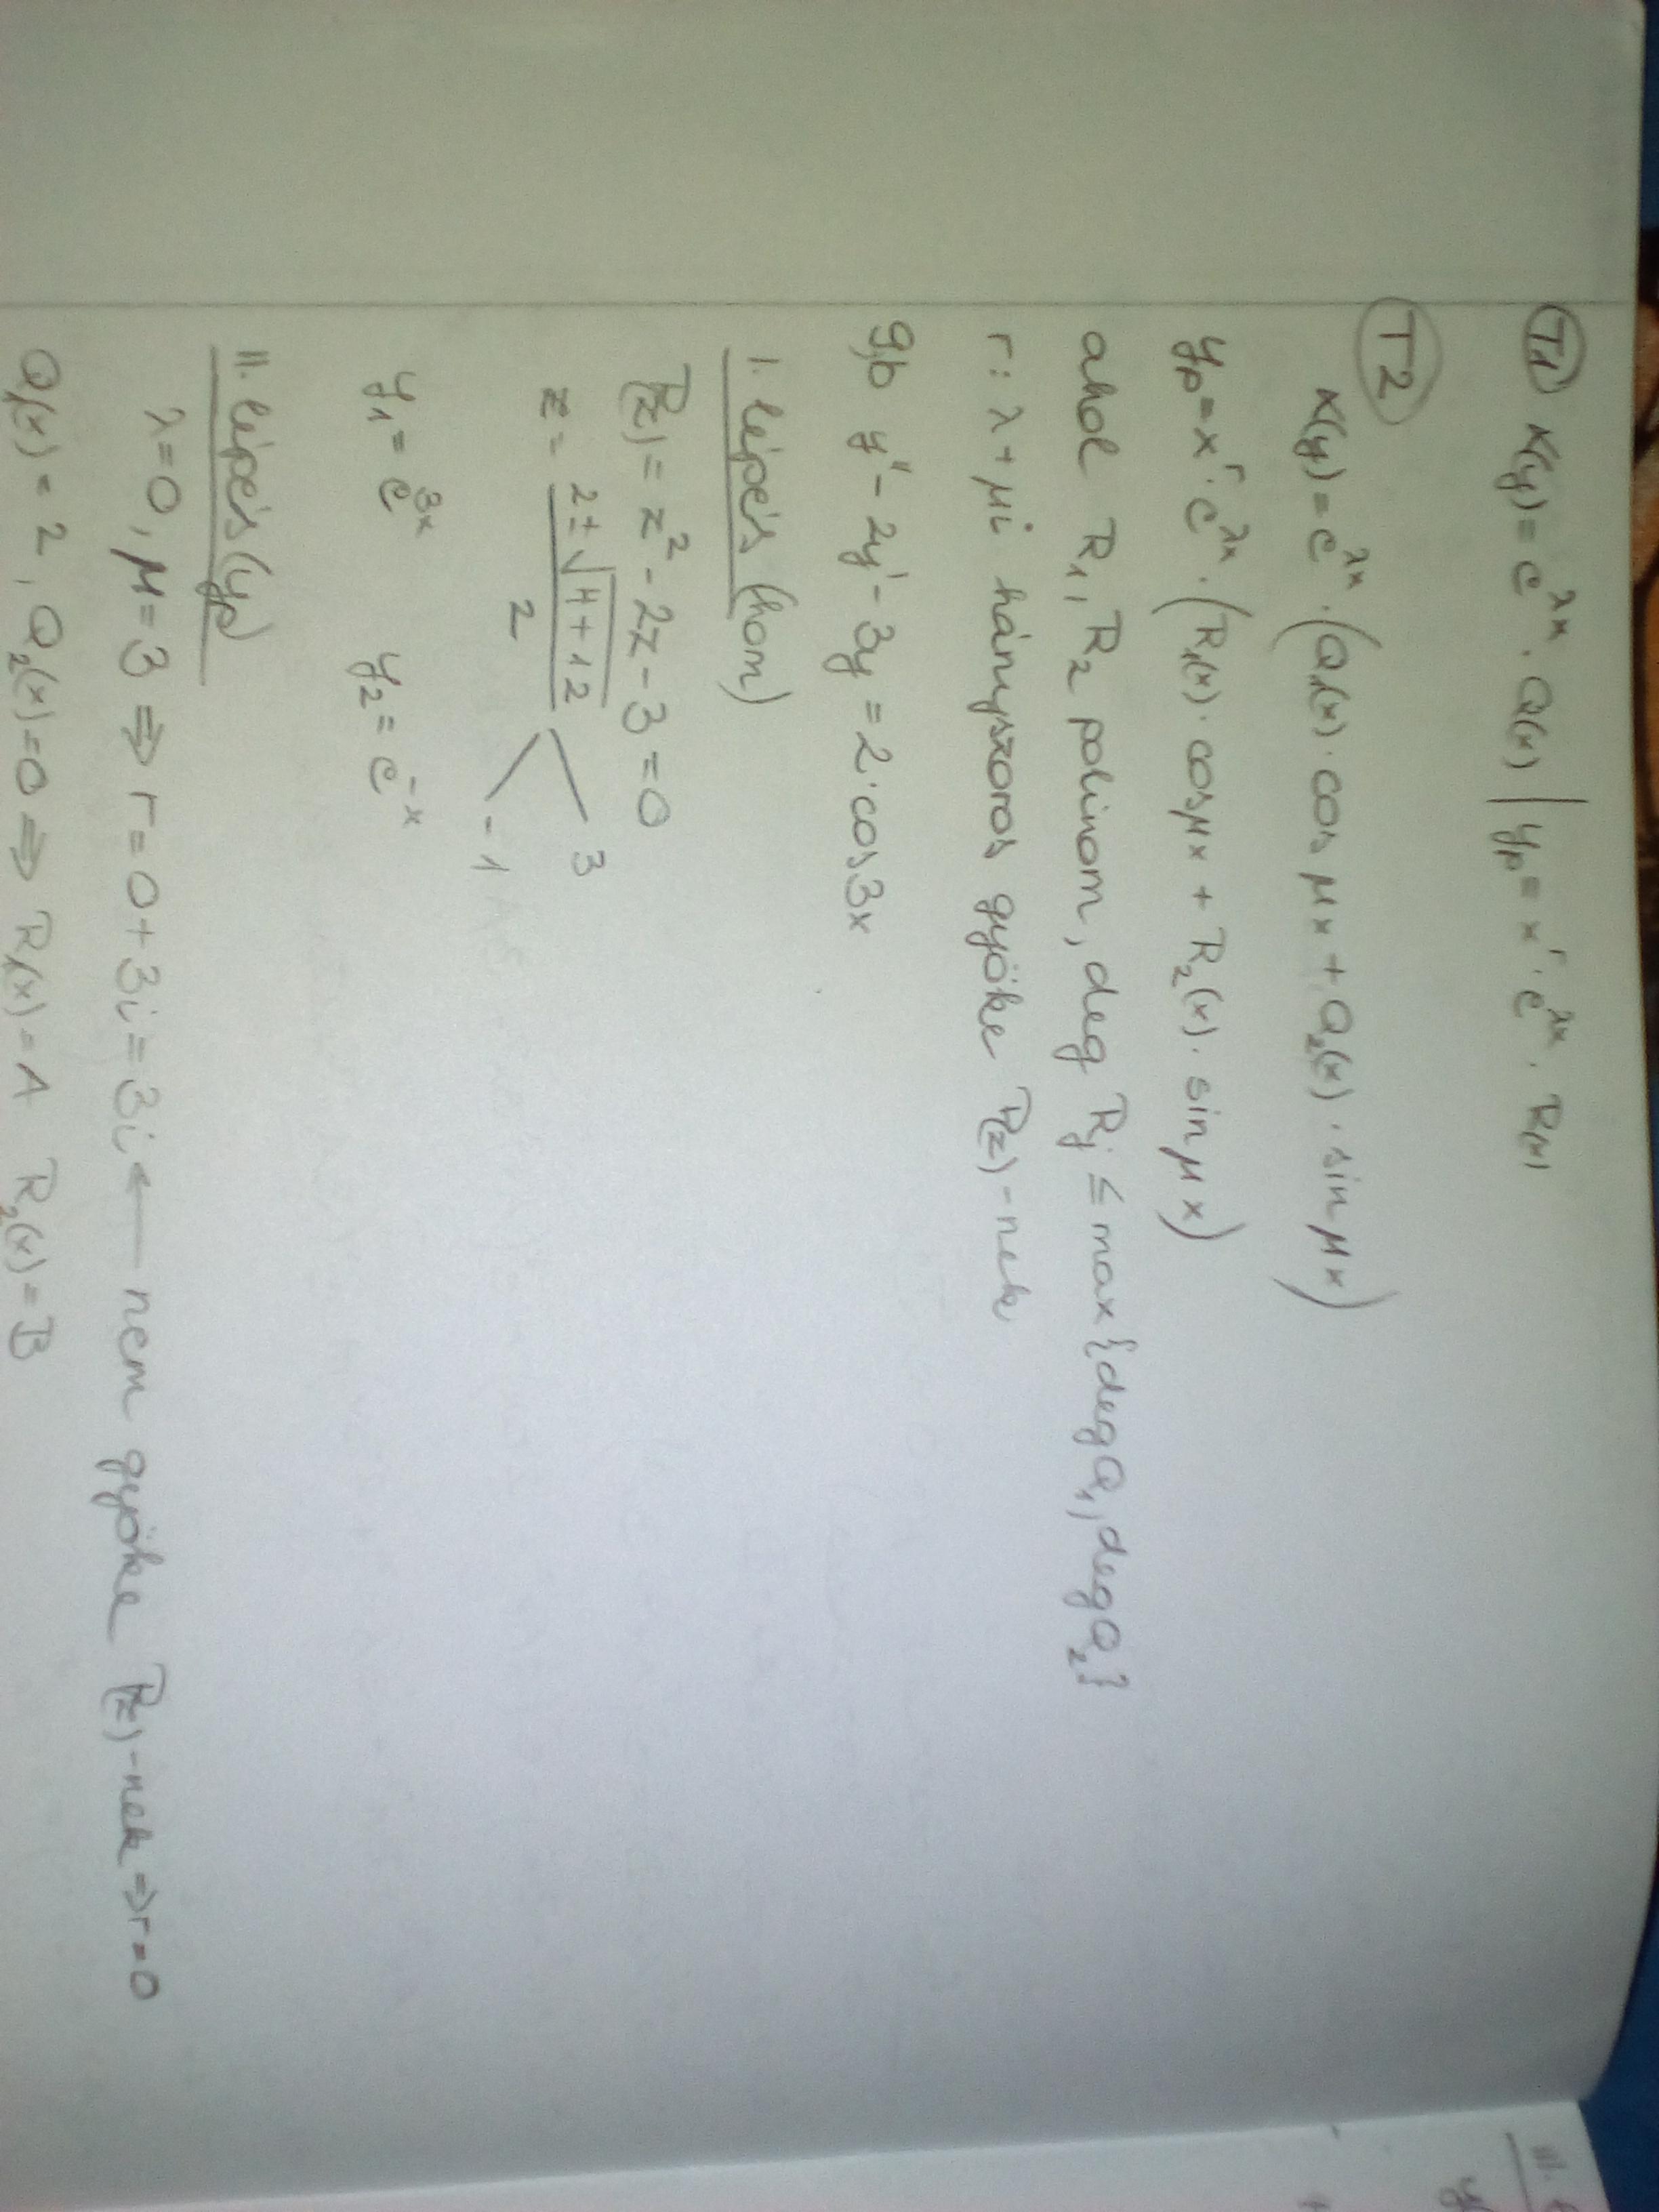 T1 K(y) = e^{λx} · Q(x) | y_p = x^r · e^{λx} · R(x)
T2
K(y) = e^{λx} · (Q₁(x) · cos μx + Q₂(x) · sin μx)
y_p = x^r · e^{λx} · (R₁(x) · cos μx + R₂(x) · sin μx)
ahol R₁, R₂ polinom, deg R_j ≤ max{deg Q₁, deg Q₂}
r: λ + μi hányszoros gyöke P(z)-nek
9,b y'' - 2y' - 3y = 2 · cos 3x
I. lépés (hom)
P(z) = z² - 2z - 3 = 0
z = (2 ± √(4+12)) / 2 < 3, -1
y₁ = e^{3x} y₂ = e^{-x}
II. lépés (y_p)
λ = 0, μ = 3 ⇒ r = 0 + 3i = 3i ← nem gyöke P(z)-nek ⇒ r = 0
Q₁(x) = 2, Q₂(x) = 0 ⇒ R₁(x) = A R₂(x) = B
III.